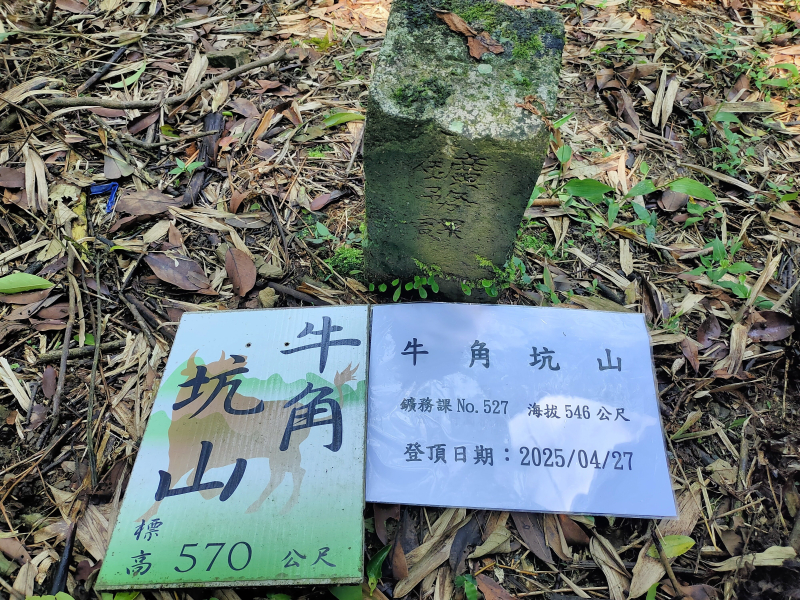 礦務課
牛角
坑山
標高 570 公尺
牛角坑山
鑛務課No.527 海拔546公尺
登頂日期：2025/04/27